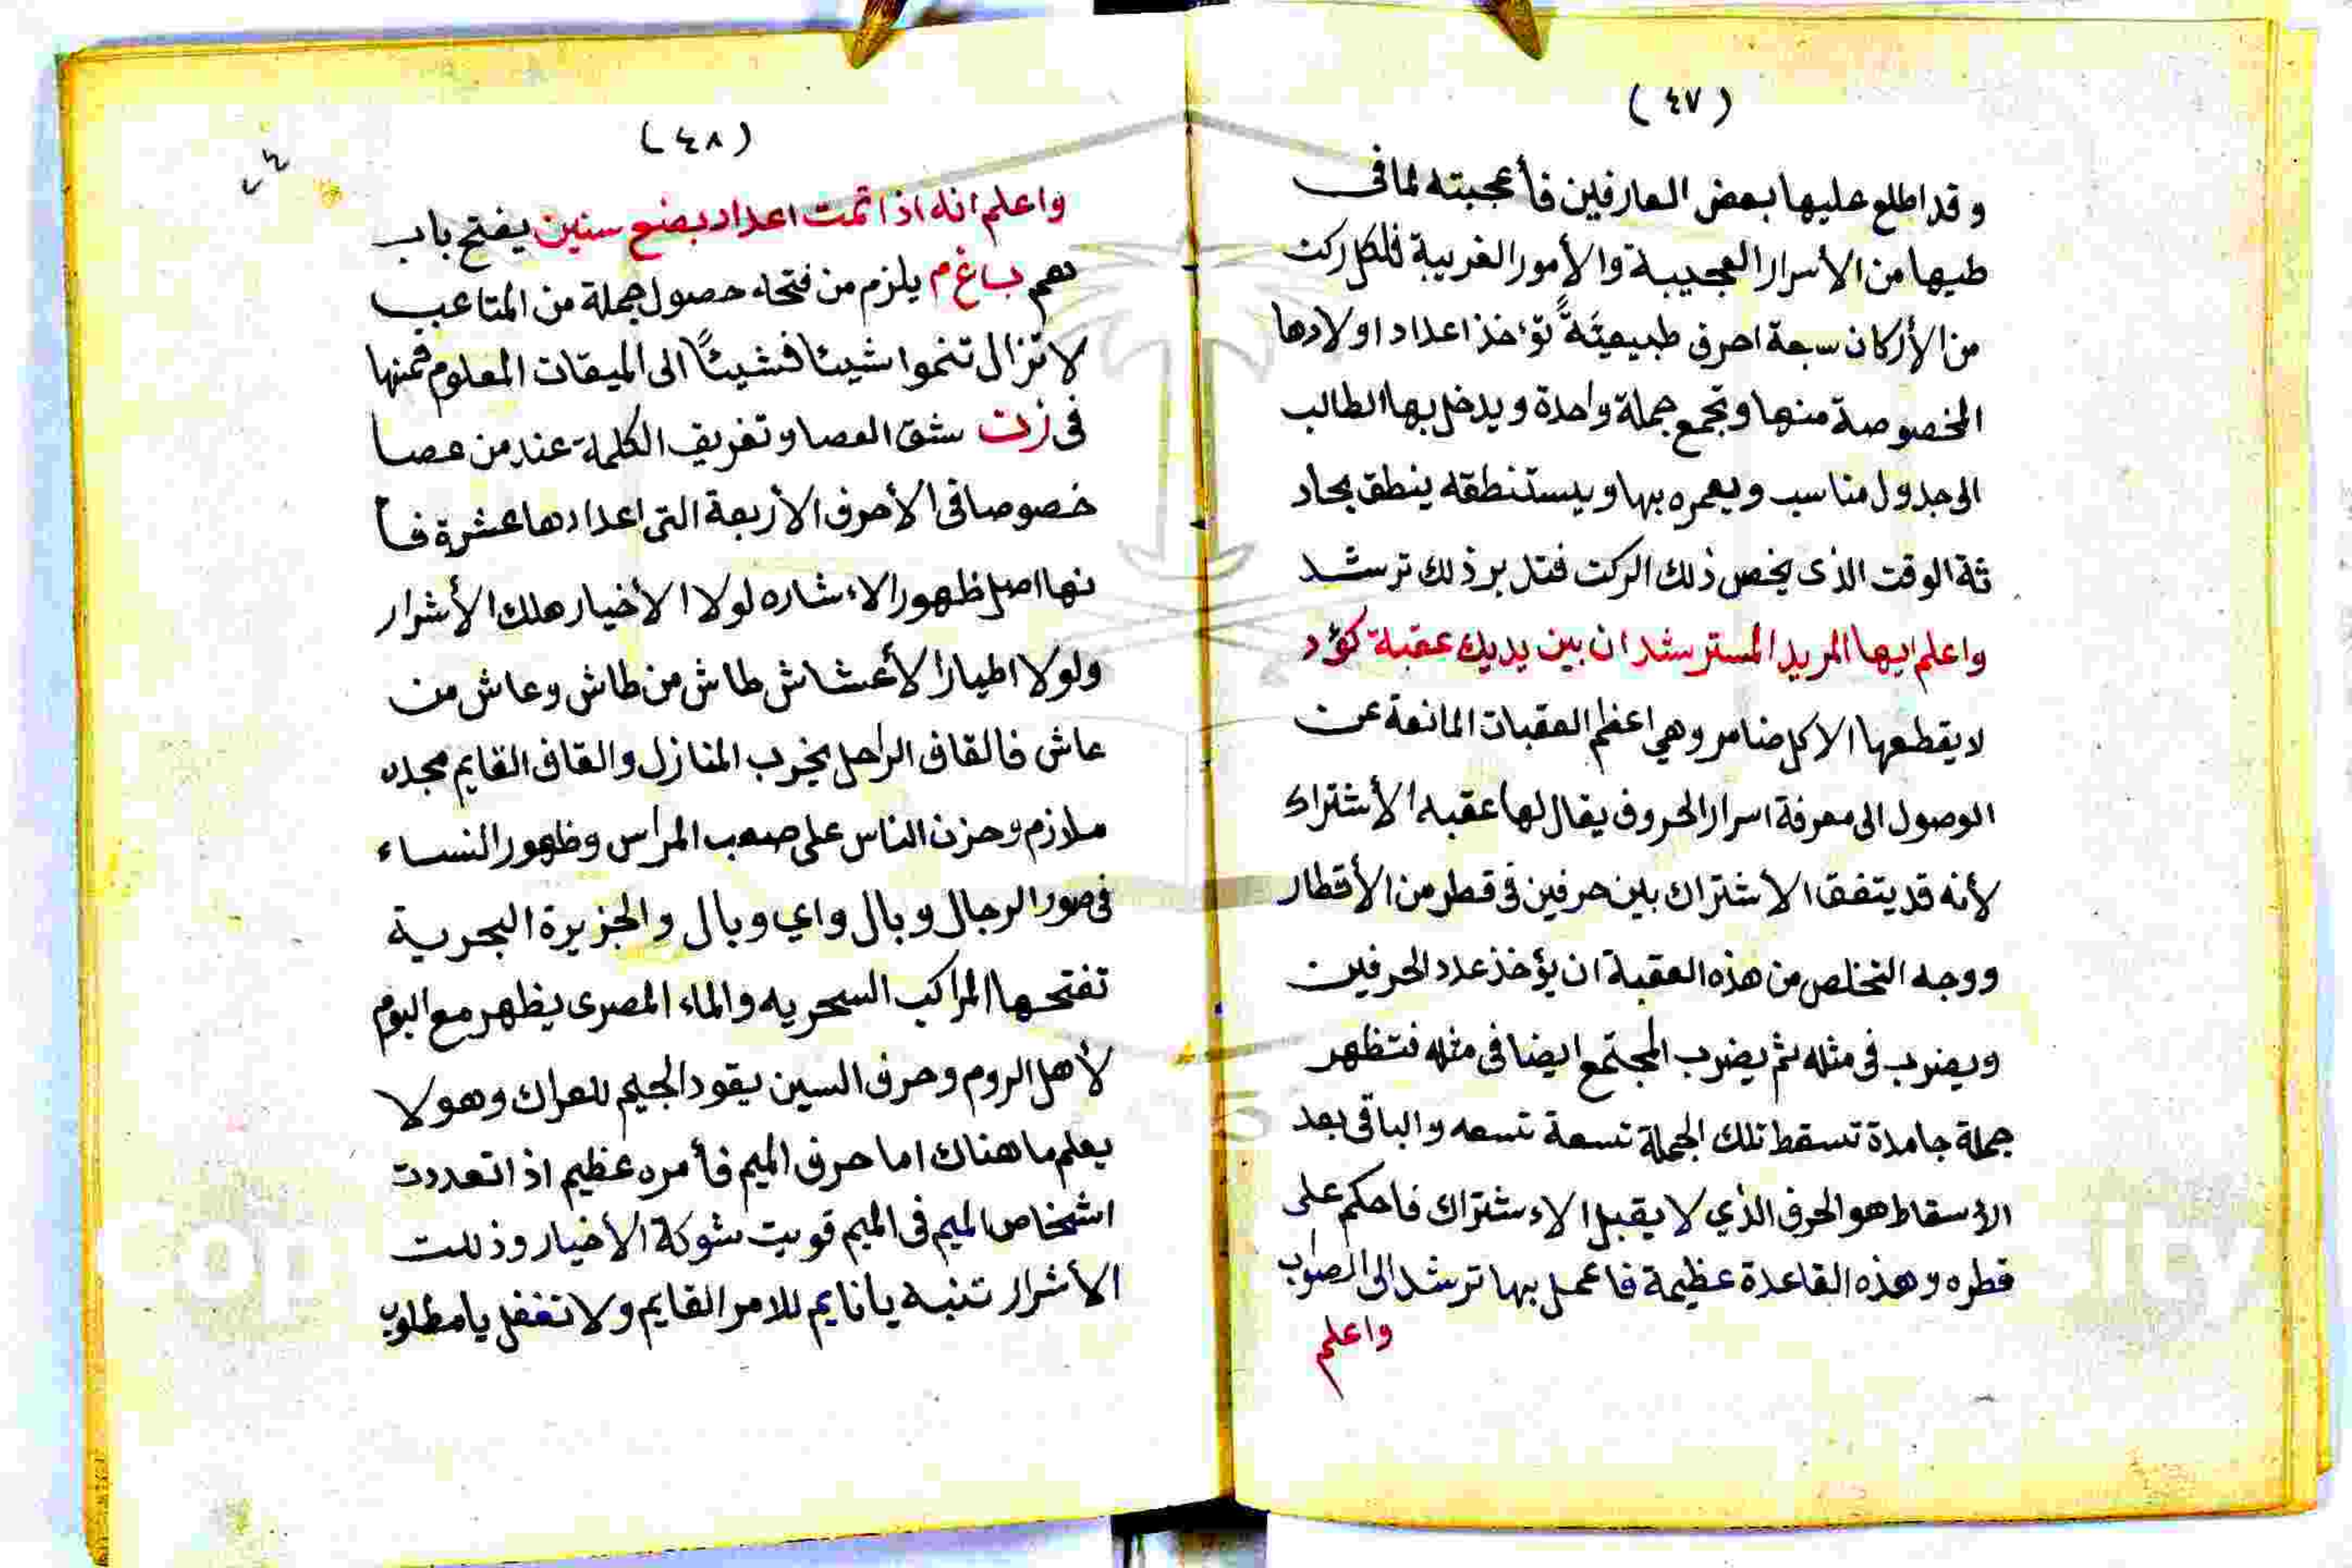 (٤٧)
وقد اطلع عليها بعض العارفين فأعجبته لما فى
طيها من الأسرار العجيبة والأمور الغريبة فلكل ركن
من الأركان سبعة احرف طبيعيَّةً تؤخذ اعداد اولادها
المخصوصة منها وتجمع جملة واحدة ويدخل بها الطالب
الى جدول مناسب ويعمره بها ويستنطقه ينطق بحاد
ثة الوقت الذى يخص ذلك الركن فتدبر ذلك ترشد
واعلم ايها المريد المسترشد ان بين يديك عقبة كؤد
لا يقطعها الا كل ضامر وهي اعظم العقبات المانعة عن
الوصول الى معرفة اسرار الحروف يقال لها عقبه الأشتراك
لأنه قد يتفق الاشتراك بين حرفين فى قطر من الأقطار
ووجه التخلص من هذه العقبة ان يؤخذ عدد الحرفين
ويضرب فى مثله ثم يضرب المجتمع ايضا فى مثله فتظهر
جملة جامدة تسقط تلك الجملة تسعة تسعه والباقى بعد
الأسقاط هو الحرف الذي لا يقبل الاءشتراك فاحكم على
قطره وهذه القاعدة عظيمة فاعمل بها ترشد الى الصواب
واعلم
(٤٨)
واعلم انه اذا تمت اعداد بضع سنين يفتح باب
باغ م يلزم من فتحه حصول جملة من المتاعب
لا تزال تنموا شيئا فشيئًا الى الميقات المعلوم فمنها
فى زن شق العصا وتفريق الكلمة عند من عصا
خصوصا فى الأحرف الأربعة التى اعدادها عشرة فأ
نها اصل ظهور الاءشاره لولا الأخيار هلك الأشرار
ولولا اطيار الأعشاش طاش من طاش وعاش من
عاش فالقاف الراحل يخرب المنازل والقاف القايم مجده
ملازم وحزن الناس على صعب المراس وظهور النساء
فى صور الرجال وبال واي وبال والجزيرة البحرية
تفتحها المراكب السحريه والماء المصرى يظهر مع البوم
لأهل الروم وحرف السين يقود الجيم للعراك وهو لا
يعلم ما هناك اما حرف الميم فأمره عظيم اذا تعددت
اشخاص الميم فى الميم قويت شوكة الأخيار وذلت
الأشرار تنبه يا نايم للامر القايم ولا تغفل يا مطلوب